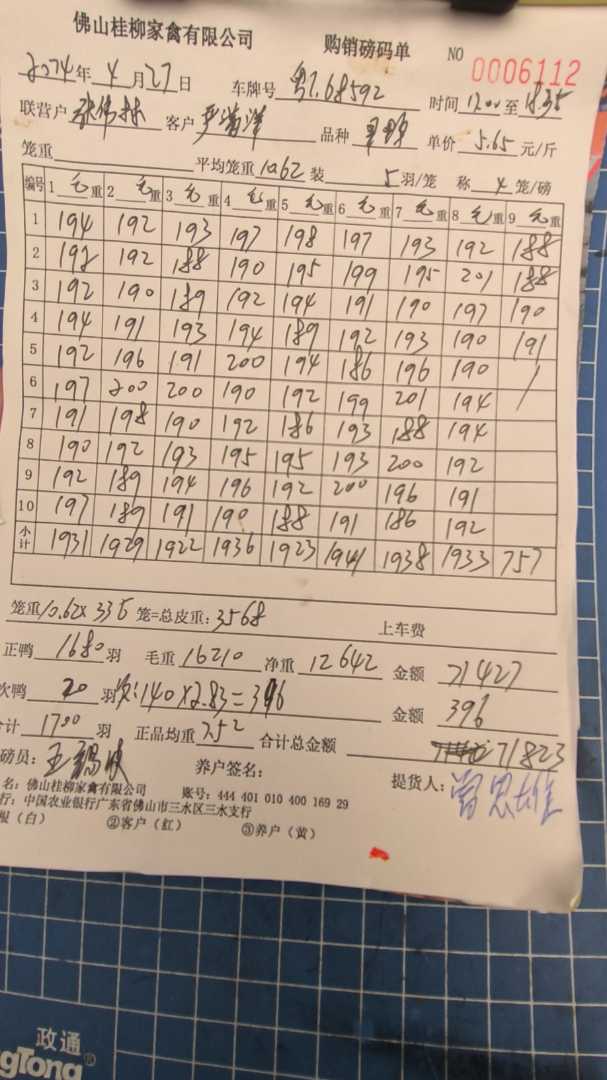 佛山桂柳家禽有限公司 购销磅码单 NO 0006112
2024年 4月 27日 车牌号 粤T.68592 时间 17.00 至 18.35
联营户 客户 品种 单价 5.65 元/斤
笼重 平均笼重 10.62 装 5 羽/笼 称 4 笼/磅
编号 1 毛重 2 毛重 3 毛重 4 毛重 5 毛重 6 毛重 7 毛重 8 毛重 9 毛重
1 194 192 193 197 198 197 193 192 188
2 192 192 188 190 195 199 195 201 188
3 192 190 189 192 194 191 190 197 190
4 194 191 193 194 189 192 193 190 191
5 192 196 191 200 194 186 196 190 /
6 197 200 200 190 192 199 201 194
7 191 198 190 192 186 193 188 194
8 190 192 193 195 195 193 200 192
9 192 189 194 196 192 200 196 191
10 197 189 191 190 188 191 186 192
小计 1931 1929 1922 1936 1923 1941 1938 1933 757
笼重 10.62 X 336 笼=总皮重: 3568 上车费
正鸭 1680 羽 毛重 16210 净重 12642 金额 71427
次鸭 20 羽 次:140×2.83=396 金额 396
合计 1700 羽 正品均重 7.52 合计总金额 71823
磅员: 养户签名: 提货人: 曾思雄
名: 佛山桂柳家禽有限公司 账号: 444 401 010 400 169 29
行: 中国农业银行广东省佛山市三水区三水支行
根(白) ②客户(红) ③养户(黄)
政通
ngTong®